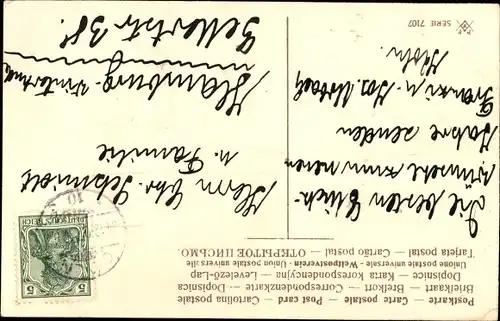 Postkarte — Carte postale — Post card — Cartolina postale
Briefkaart — Brefkort — Correspondenzkarte — Dopisnica
Dopisnice — Karta Korespondencyjna — Levelező-Lap
Unione postale universale - Weltpostverein - Union postale universelle
Tarjeta postal — Cartão postal — ОТКРЫТОЕ ПИСЬМО
Die besten Glück-
wünsche zum neuen
Jahre senden
Franz u.
Herrn Chr. Schmidt
u. Familie
Hamburg-
Gellertstr. 38.
DEUTSCHES REICH
5 5
10
SERIE 7107